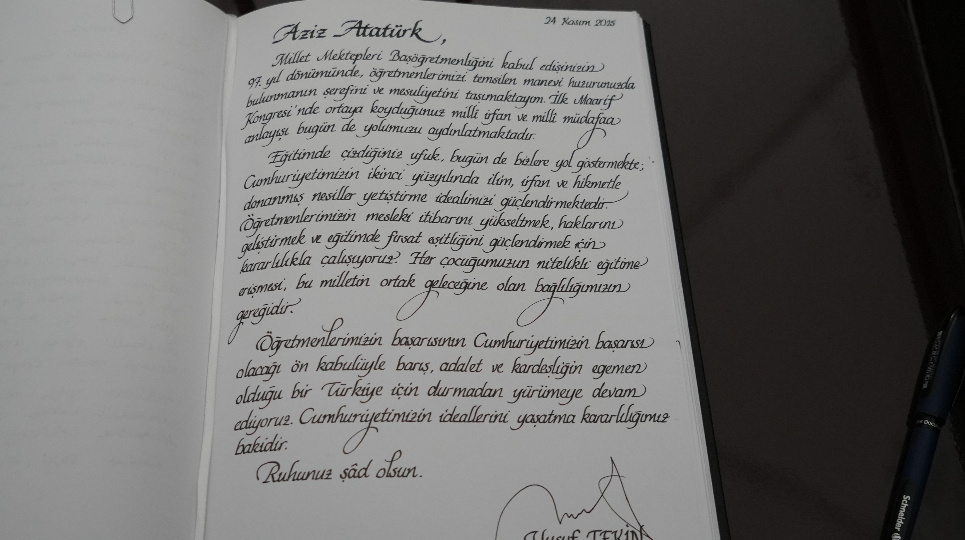 24 Kasım 2025
Aziz Atatürk,
Millet Mektepleri Başöğretmenliğini kabul edişinizin
97. yıl dönümünde, öğretmenlerimizi temsilen manevi huzurunuzda
bulunmanın şerefini ve mesuliyetini taşımaktayım. İlk Maarif
Kongresi'nde ortaya koyduğunuz milli irfan ve milli müdafaa
anlayışı bugün de yolumuzu aydınlatmaktadır.
Eğitimde çizdiğiniz ufuk, bugün de bizlere yol göstermekte;
Cumhuriyetimizin ikinci yüzyılında ilim, irfan ve hikmetle
donanmış nesiller yetiştirme idealimizi güçlendirmektedir.
Öğretmenlerimizin mesleki itibarını yükseltmek, haklarını
geliştirmek ve eğitimde fırsat eşitliğini güçlendirmek için
kararlılıkla çalışıyoruz? Her çocuğumuzun nitelikli eğitime
erişmesi, bu milletin ortak geleceğine olan bağlılığımızın
gereğidir.
Öğretmenlerimizin başarısının Cumhuriyetimizin başarısı
olacağı ön kabulüyle barış, adalet ve kardeşliğin egemen
olduğu bir Türkiye için durmadan yürümeye devam
ediyoruz. Cumhuriyetimizin ideallerini yaşatma kararlılığımız
bakidir.
Ruhunuz şâd olsun.
Yusuf TEKİN
Schneider